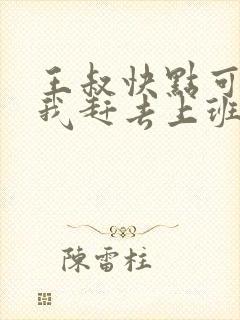 王叔快點可
我赶去上班
陳雷柱